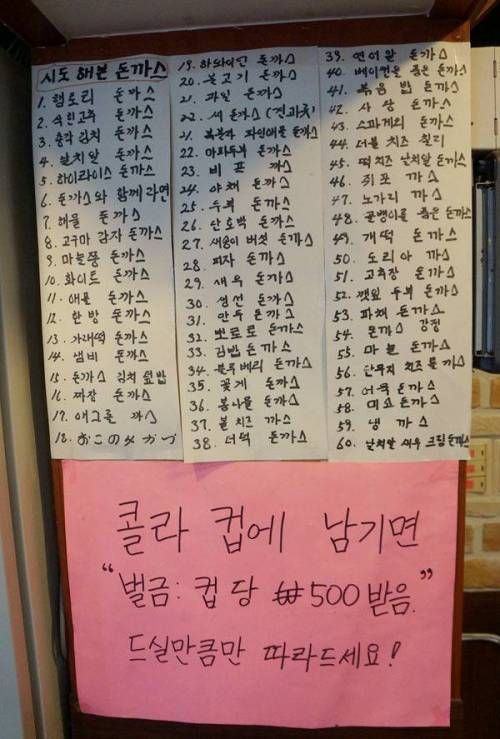 시도 해본 돈까스
1. 햄토리 돈까스
2. 숙힌고추 돈까스
3. 총각 김치 돈까스
4. 날치알 돈까스
5. 하이라이스 돈까스
6. 돈까스와 함께 라면
7. 해물 돈까스
8. 고구마 감자 돈까스
9. 마늘쫑 돈까스
10. 화이트 돈까스
11. 애플 돈까스
12. 한방 돈까스
13. 가래떡 돈까스
14. 냄비 돈까스
15. 돈까스 김치 덮밥
16. 짜장 돈까스
17. 애그풀 까스
18. おこのみかつ
19. 하와이안 돈까스
20. 불고기 돈까스
21. 과일 돈까스
22. 세 돈까스 (견과류)
21. 복분자 파인애플 돈까스
22. 마파두부 돈까스
23. 비프 까스
24. 야채 돈까스
25. 두부 돈까스
26. 단호박 돈까스
27. 새송이 버섯 돈까스
28. 피자 돈까스
29. 새우 돈까스
30. 생선 돈까스
31. 만두 돈까스
32. 뽀로로 돈까스
33. 김밥 돈까스
34. 블루베리 돈까스
35. 꽃게 돈까스
36. 콩나물 돈까스
37. 볼 치즈 까스
38. 더덕 돈까스
39. 연어알 돈까스
40. 베이컨을 품은 돈까스
41. 볶음밥 돈까스
42. 사상 돈까스
43. 스파게티 돈까스
44. 더블 치즈 칠리
45. 떡 치즈 날치알 돈까스
46. 쥐포 까스
47. 노가리 까스
48. 골뱅이를 품은 돈까스
49. 개떡 돈까스
50. 도리아 까스
51. 고추장 돈까스
52. 깻잎 두부 돈까스
53. 파채 돈까스
54. 돈까스 강정
55. 마늘 돈까스
56. 단무지 치즈 롤까스
57. 어묵 돈까스
58. 미소 돈까스
59. 냉 까스
60. 날치알 새우 크림 돈까스
콜라 컵에 남기면
"벌금: 컵 당 ₩500 받음."
드실만큼만 따라드세요!